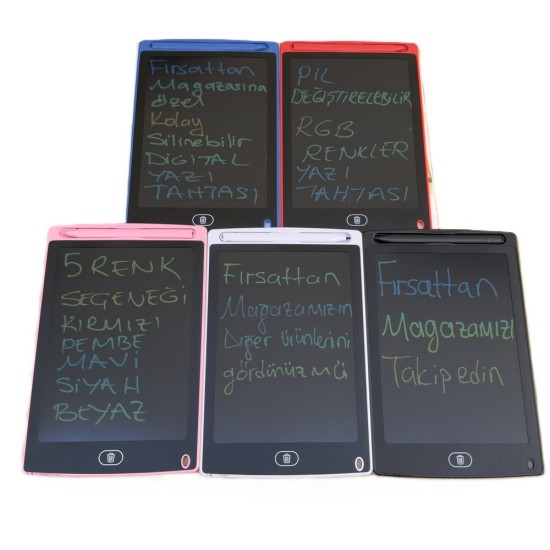 Fırsattan
Magazasına
özel
Kolay
Silinebilir
DİGİTAL
YAZI
TAHTASI
PİL
DEĞİŞTİRELEBİLİR
RGB
RENKLER
YAZI
TAHTASI
5 RENK
SEGENEĞİ
KIRMIZI
PEMBE
MAVİ
SİYAH
BEYAZ
Fırsattan
Magazamızın
Dığer ürünlerini
gördünüz mü
Fırsattan
Magazamızı
Takip edin